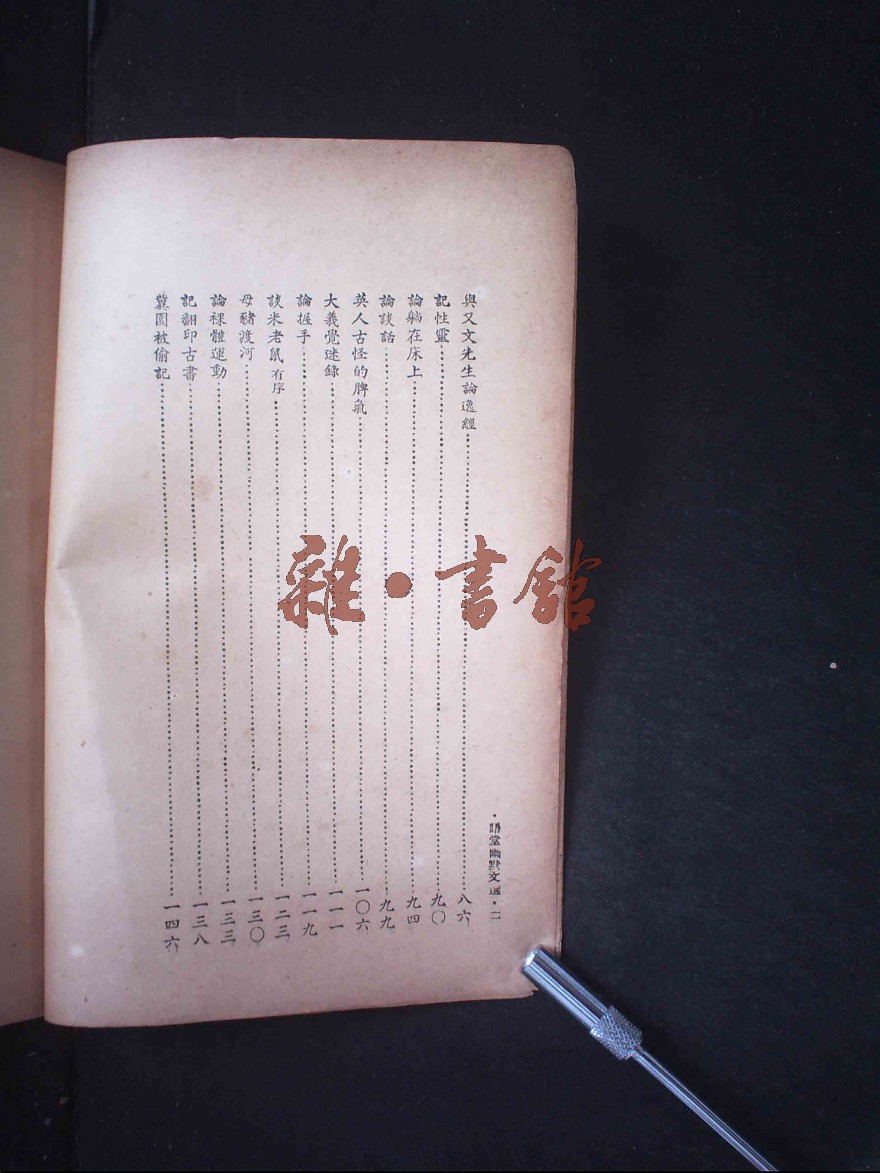 與又文先生論逸經……八六
記性靈……九〇
論躺在床上……九四
論談話……九九
英人古怪的脾氣……一〇六
大義覺迷錄……一一一
論握手……一一九
談米老鼠 有序……一二三
母豬渡河……一三〇
論裸體運動……一三三
記翻印古書……一三八
冀園被偷記……一四六
·語堂幽默文選·二
雜·書館